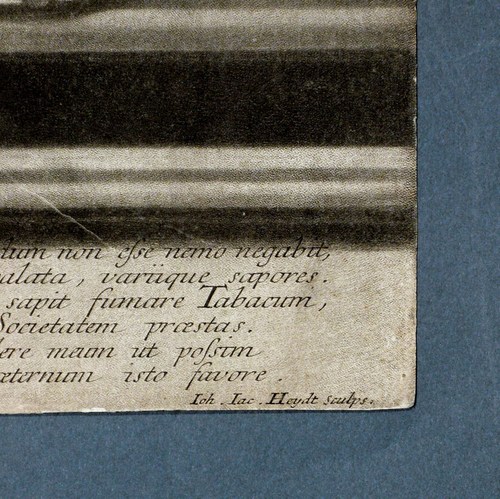 dum non eſse nemo negabit,
alata, variique sapores.
sapit fumare Tabacum,
Societatem præstas.
ere meum ut poſsim
æternum isto favore.
Ioh. Iac. Heydt Sculps.